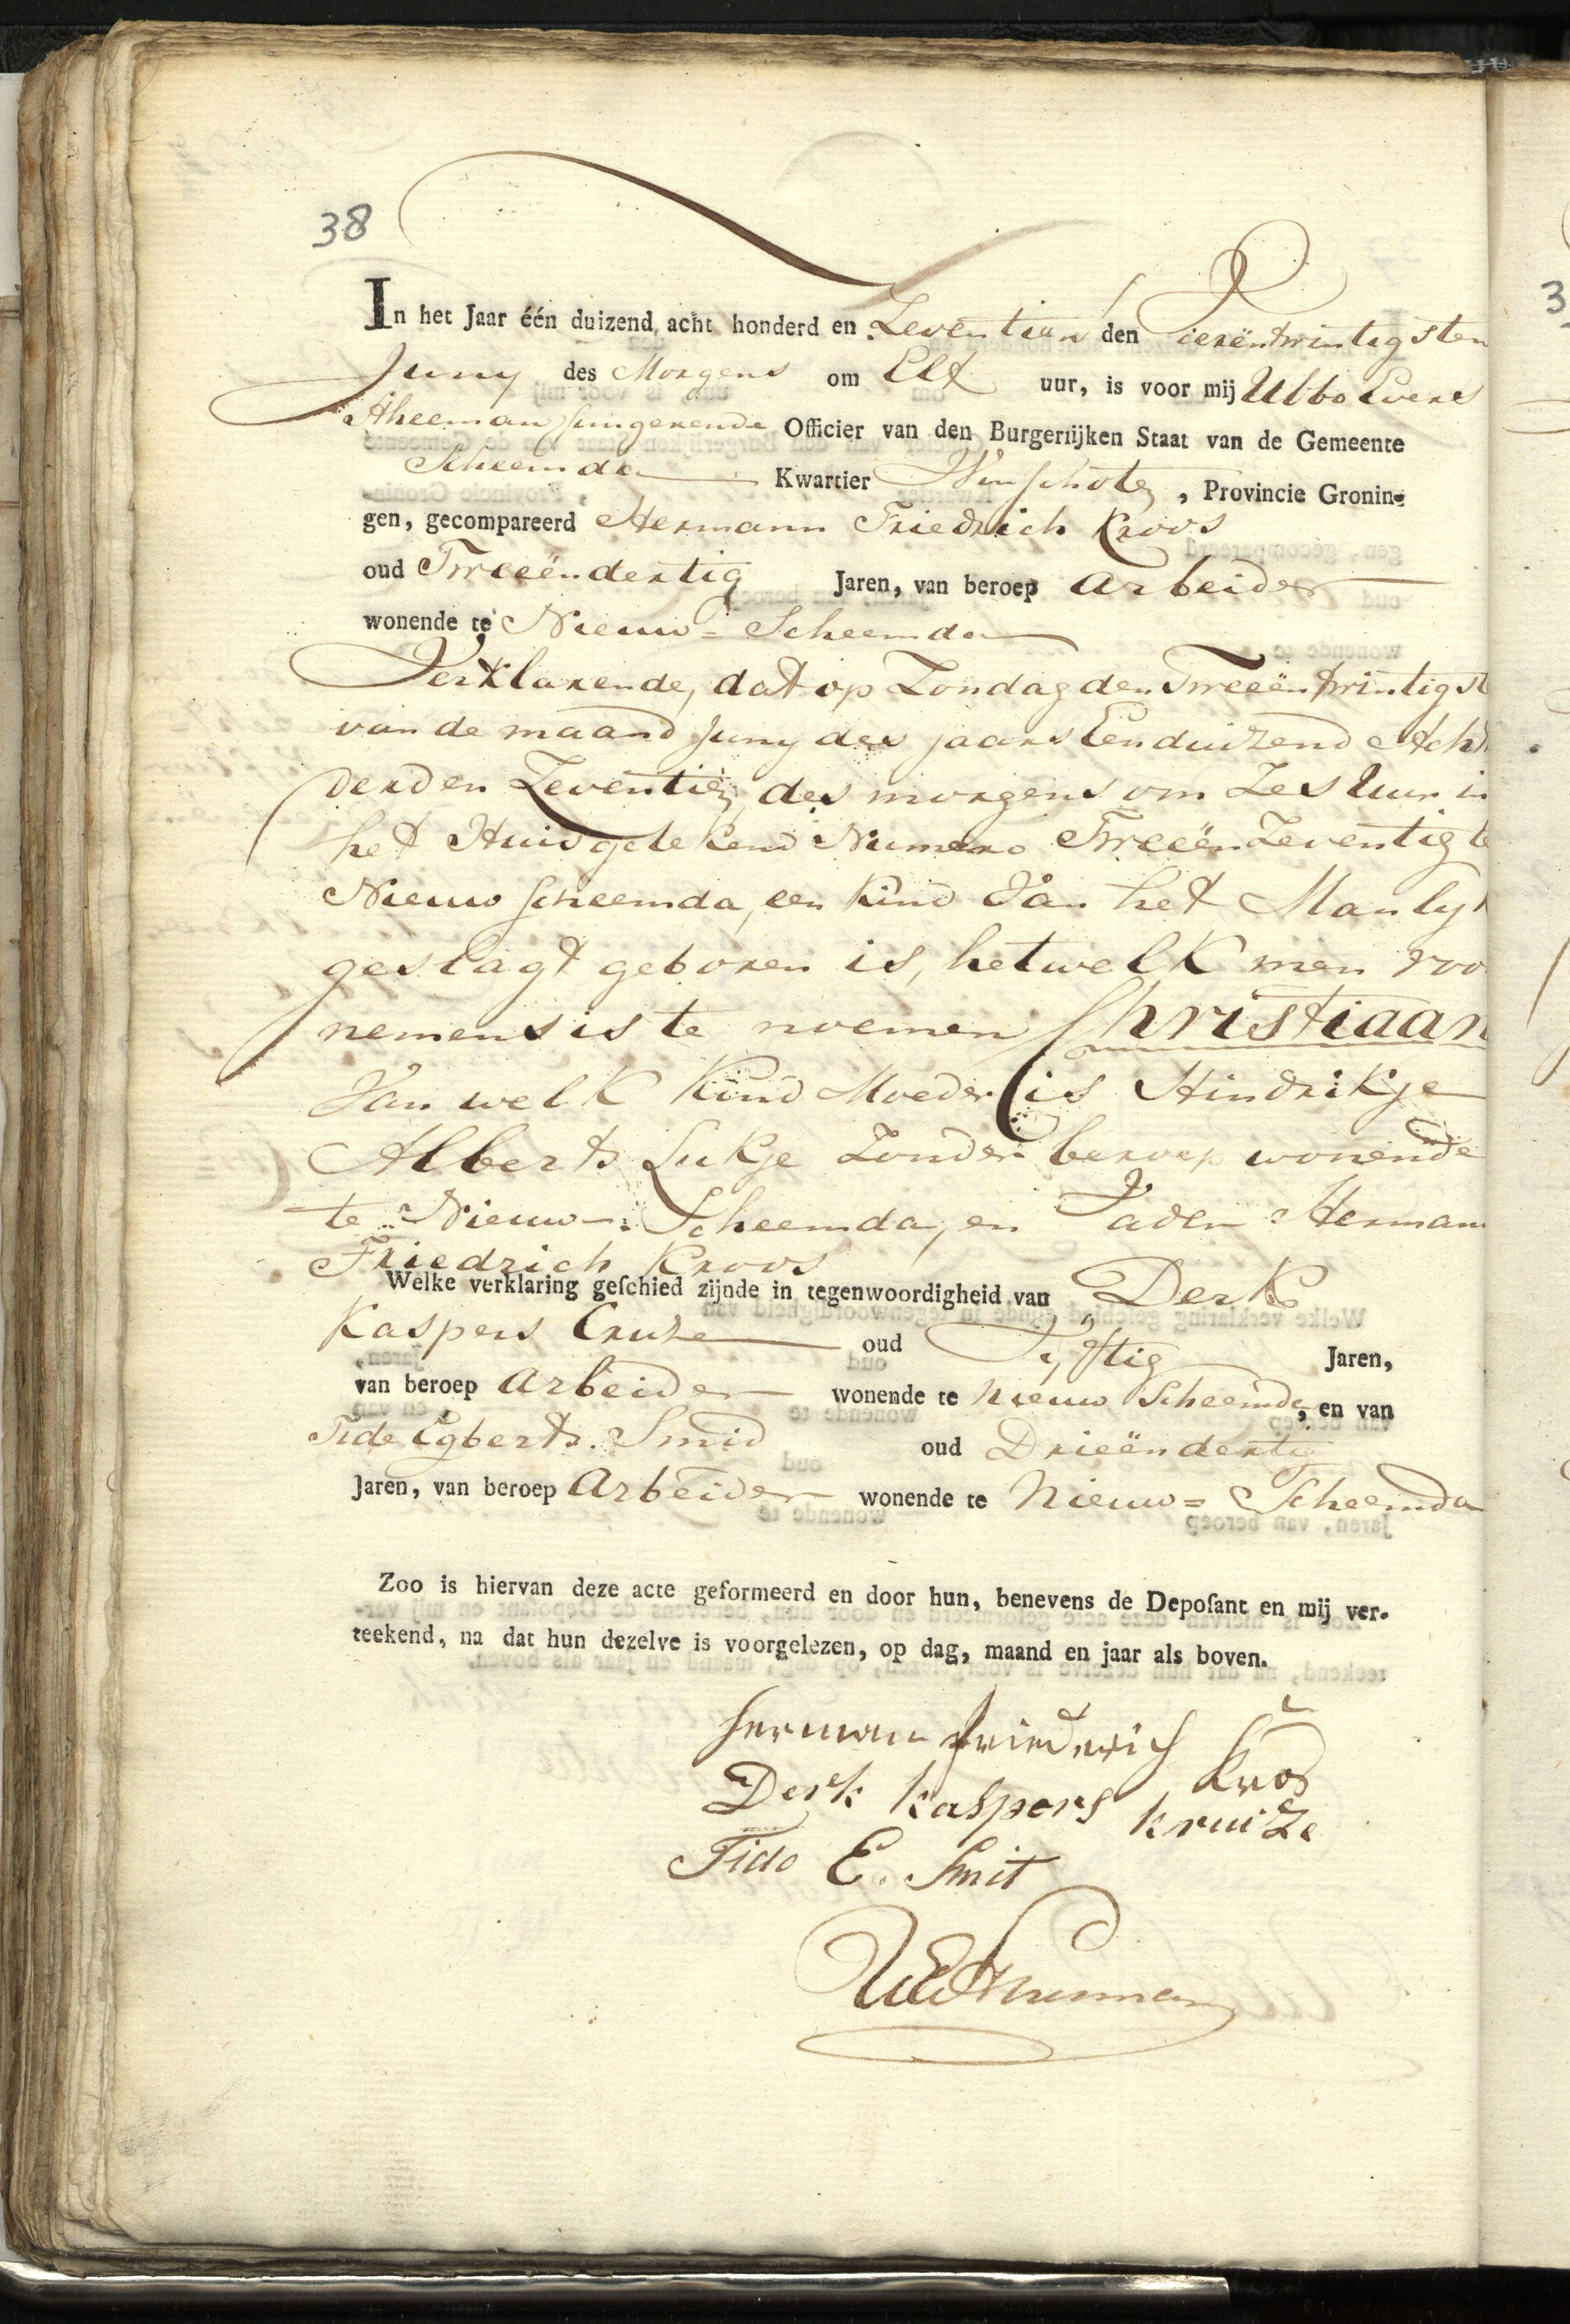 38
In het Jaar één duizend acht honderd en Zeventien den Vierëntwintigsten
Juny des Morgens om Elf uur, is voor mij Ubbo Evers
fungerende Officier van den Burgerlijken Staat van de Gemeente
Scheemda Kwartier Winschoten, Provincie Gronin-
gen, gecompareerd Hermann Friedrich Kroos
oud Tweeëndertig Jaren, van beroep Arbeider
wonende te Nieuw-Scheemda
Verklarende, dat op Zondag den Tweeëntwintigst
van de maand Juny des jaars Eenduizend Acht
derd en Zeventien des morgens om Zes Uur in
het Huis getekend Numero Tweeën Zeventig te
Nieuw Scheemda, een Kind Van het Manlyk
geslagt geboren is, hetwelk men voo
nemens is te noemen Christiaan
Van welk Kind Moeder is Hindrikje
Alberts Lukje Zonder beroep wonende
te Nieuw-Scheemda, en Vader Herman
Friedrich Kroos
Welke verklaring geſchied zijnde in tegenwoordigheid van Derk
Kaspers Cruze oud Vyftig Jaren,
van beroep Arbeider wonende te Nieuw Scheemda, en van
Tide Egberts Smid oud Drieëndertig
Jaren, van beroep Arbeider wonende te Nieuw=Scheemda
Zoo is hiervan deze acte geformeerd en door hun, benevens de Depoſant en mij ver-
teekend, na dat hun dezelve is voorgelezen, op dag, maand en jaar als boven.
Herman Friederich
Kros
Derk Kaspers Kruize
Tido E. Smit
3